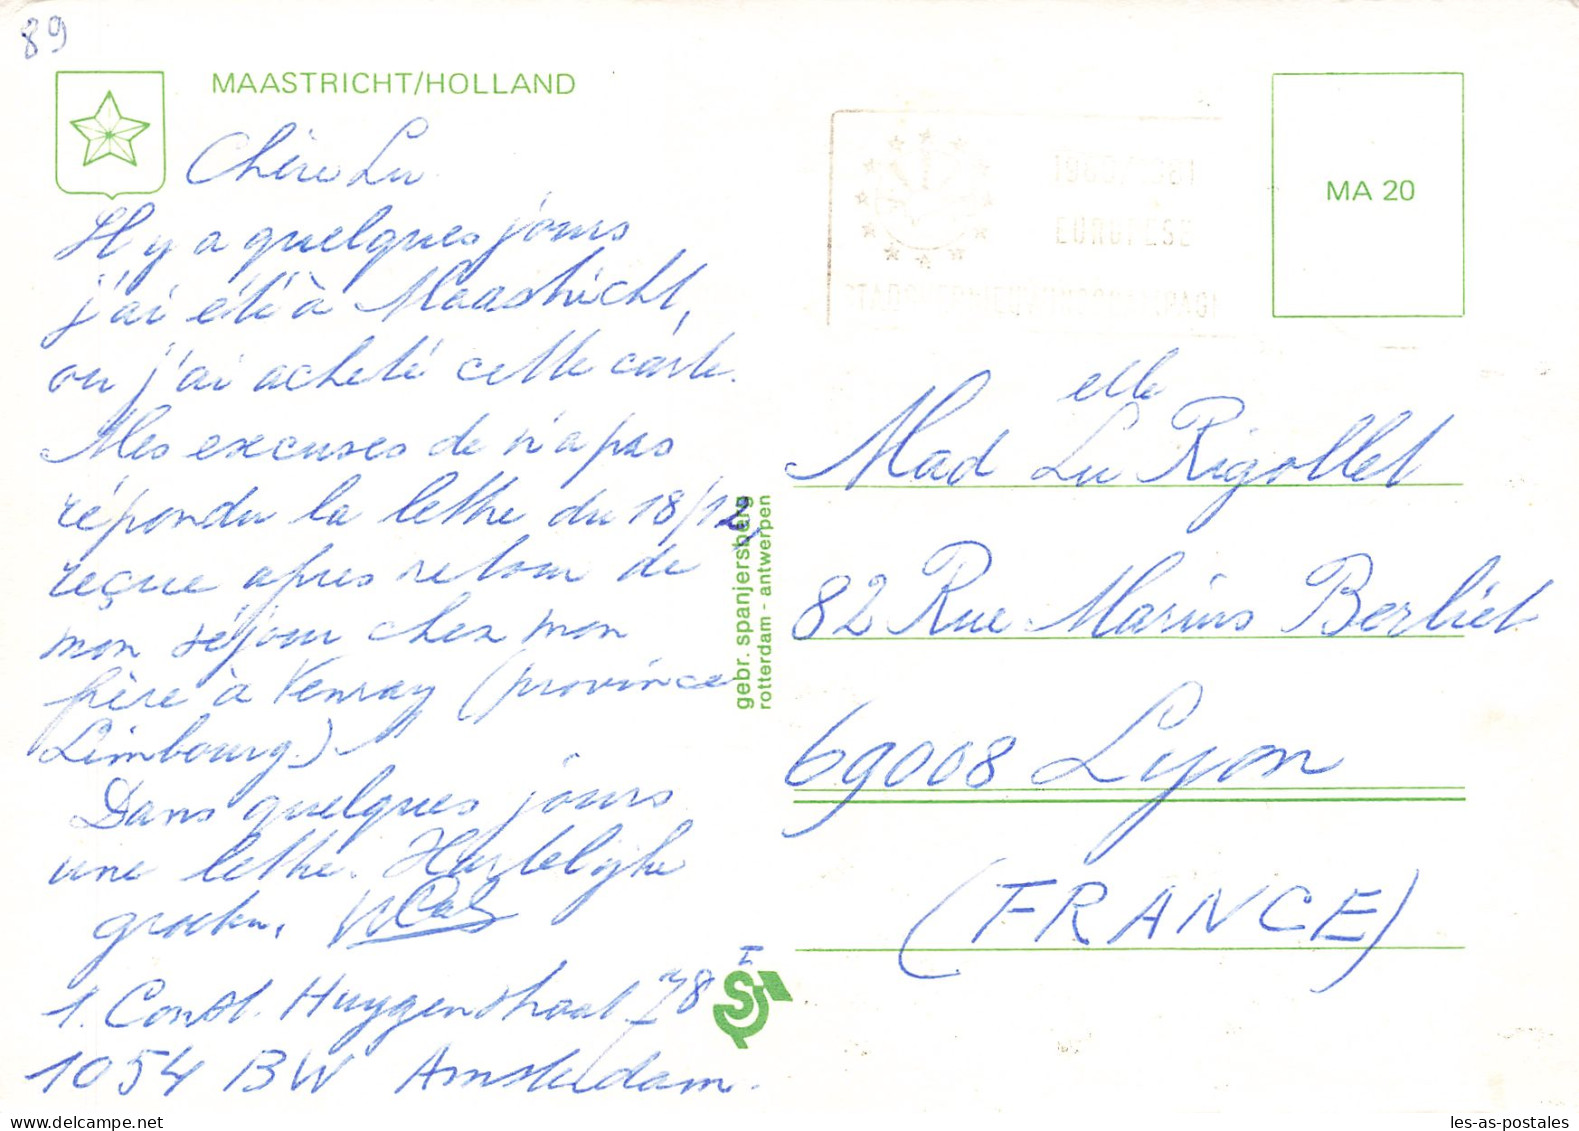 89
MAASTRICHT/HOLLAND
Chère Lu
Il y a quelques jours
j'ai été à Maastricht,
ou j'ai acheté cette carte.
Mes excuses de n'a pas
répondu la lettre du 18/12,
reçue apres retour de
mon séjour chez mon
frère à Venray (province
Limbourg.)
Dans quelques jours
une lettre. Hartelijke
groeten,
1. Const. Huygenstraat 78 I
1054 BW Amsterdam.
gebr. spanjersberg
rotterdam - antwerpen
S
1980/1981
EUROPESE
MA 20
elle
Mad Lu Rigollet
82 Rue Marius Berliet
69008 Lyon
(FRANCE)
les-as-postales